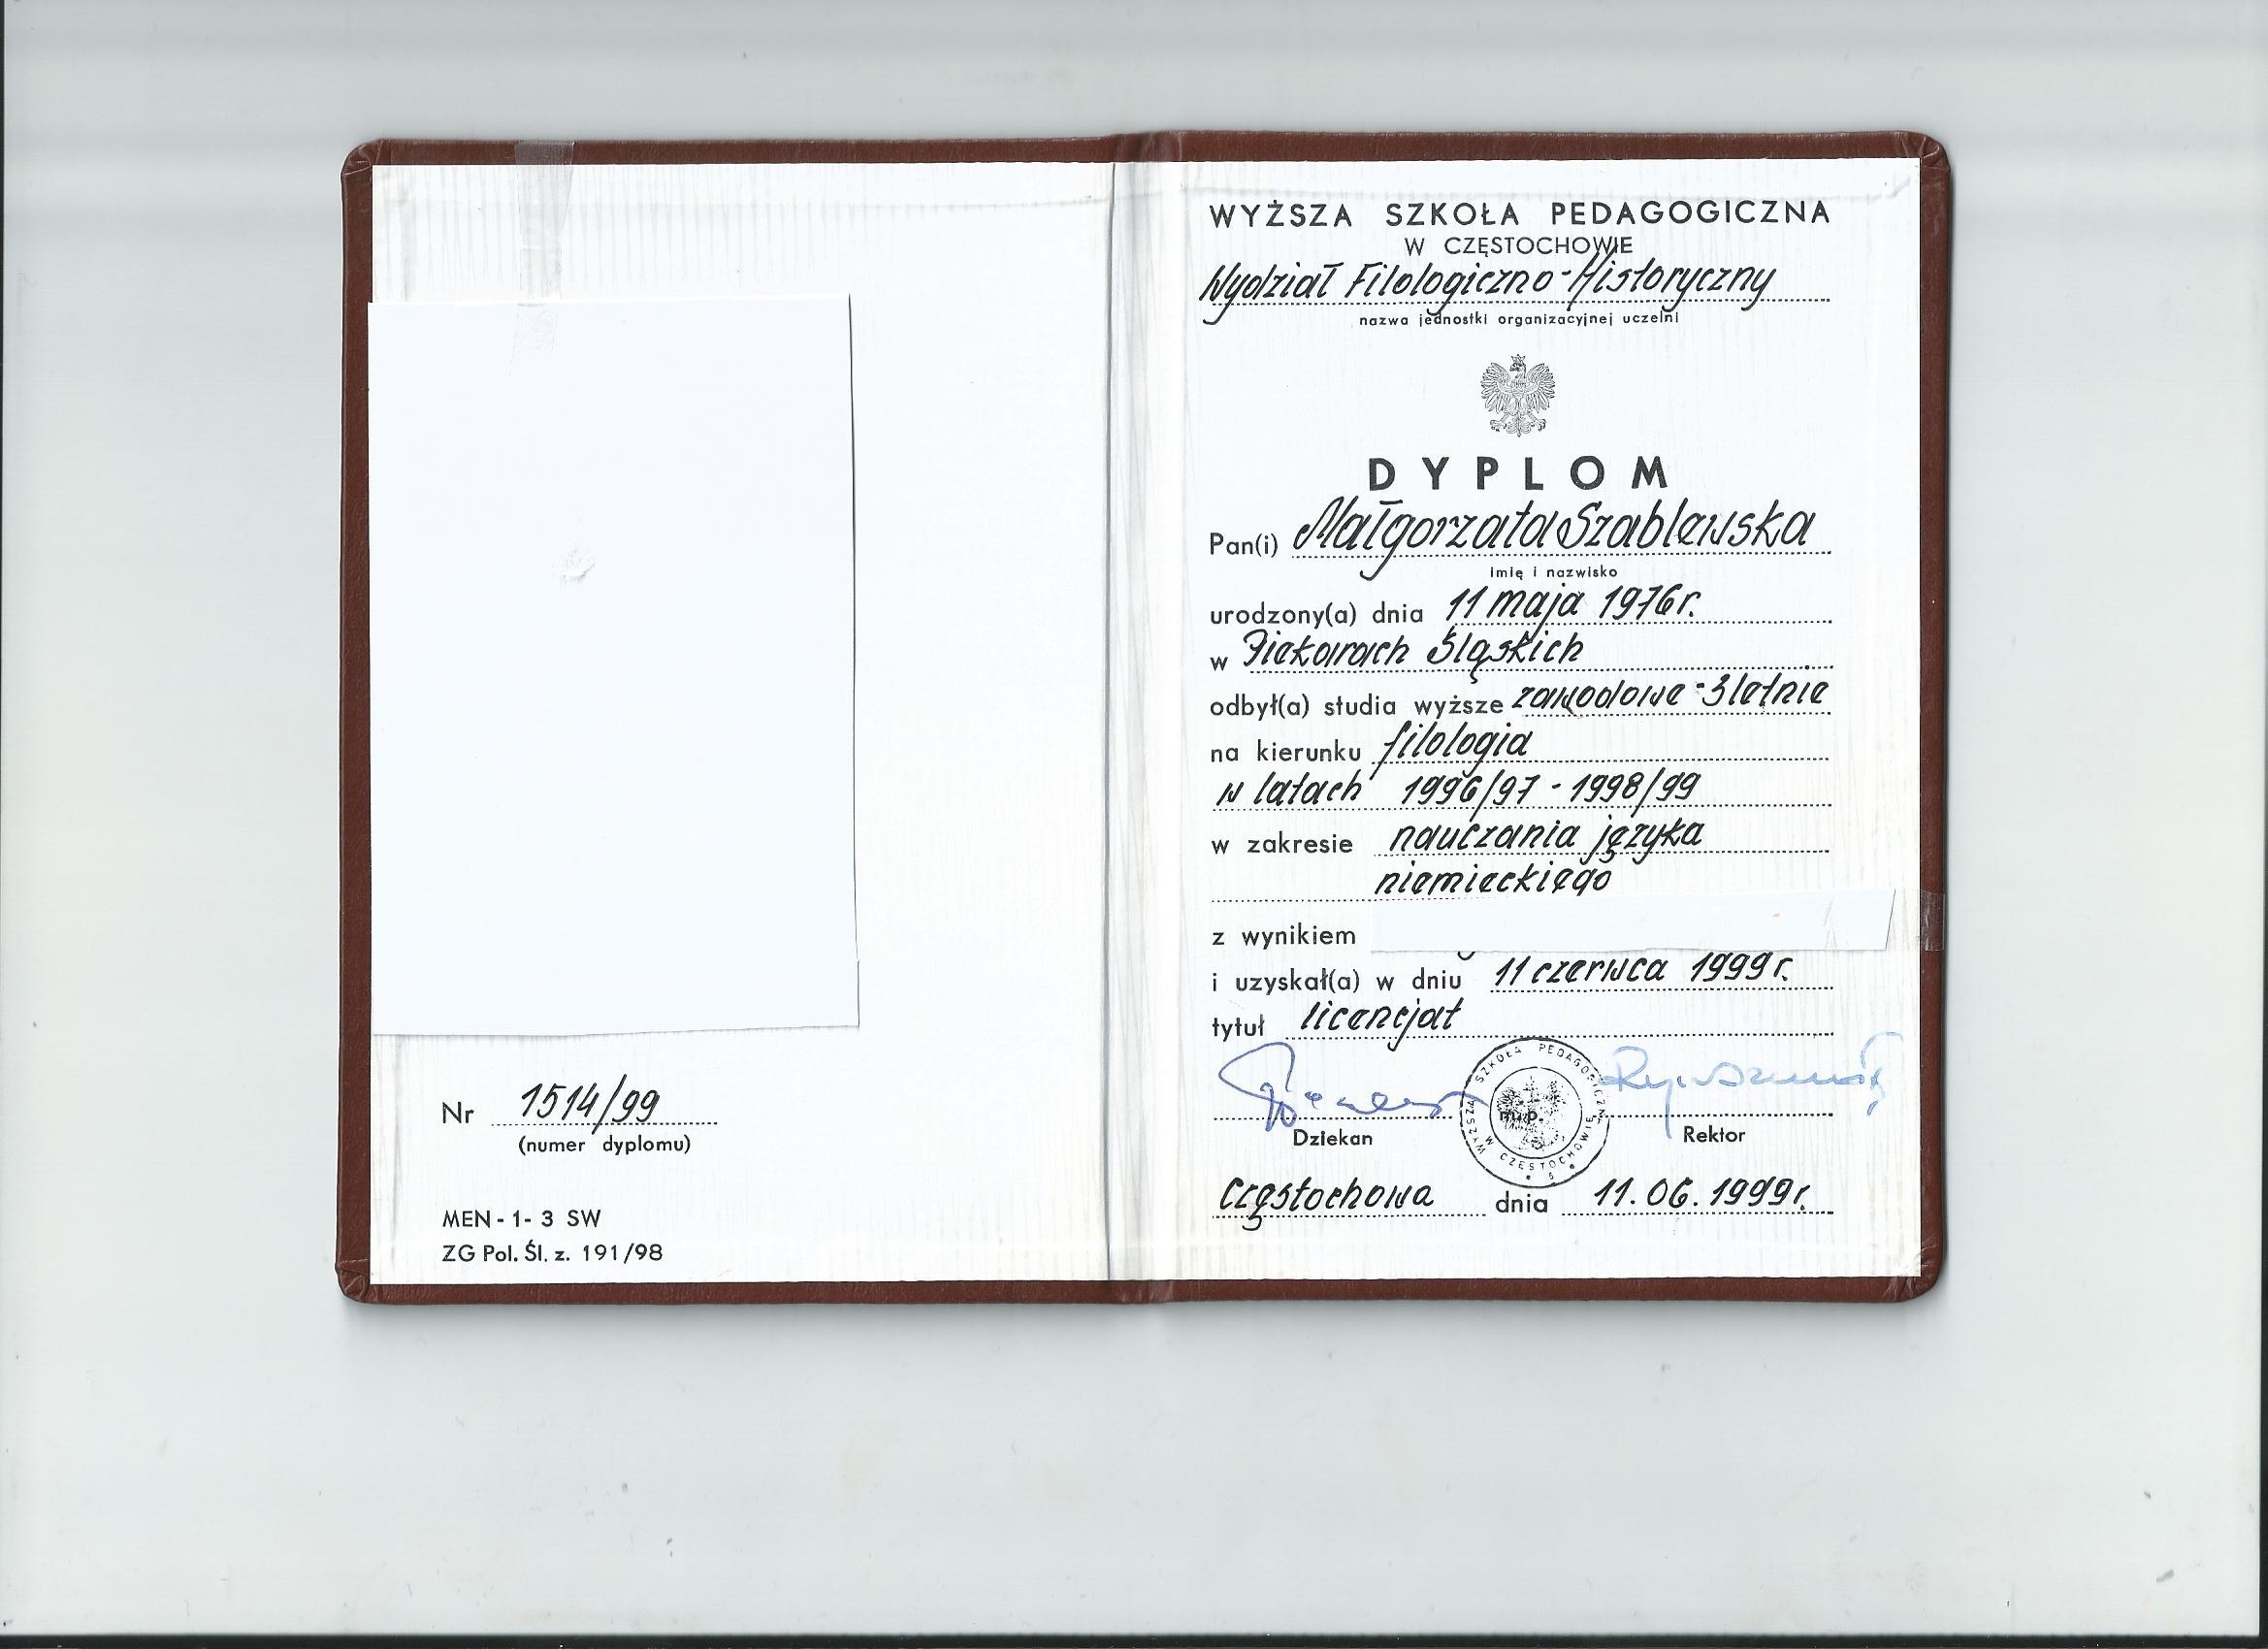 Nr 1514/99
(numer dyplomu)
MEN - 1 - 3 SW
ZG Pol. Śl. z. 191/98
WYŻSZA SZKOŁA PEDAGOGICZNA
W CZĘSTOCHOWIE
Wydział Filologiczno-Historyczny
nazwa jednostki organizacyjnej uczelni
DYPLOM
Pan(i) Małgorzata Szablewska
imię i nazwisko
urodzony(a) dnia 11 maja 1976 r.
w Piekarach Śląskich
odbył(a) studia wyższe zawodowe - 3 letnie
na kierunku filologia
w latach 1996/97 - 1998/99
w zakresie nauczania języka
niemieckiego
z wynikiem
i uzyskał(a) w dniu 11 czerwca 1999 r.
tytuł licencjat
WYŻSZA SZKOŁA PEDAGOGICZNA W CZĘSTOCHOWIE
m.p.
Dziekan
Rektor
Częstochowa dnia 11.06.1999 r.